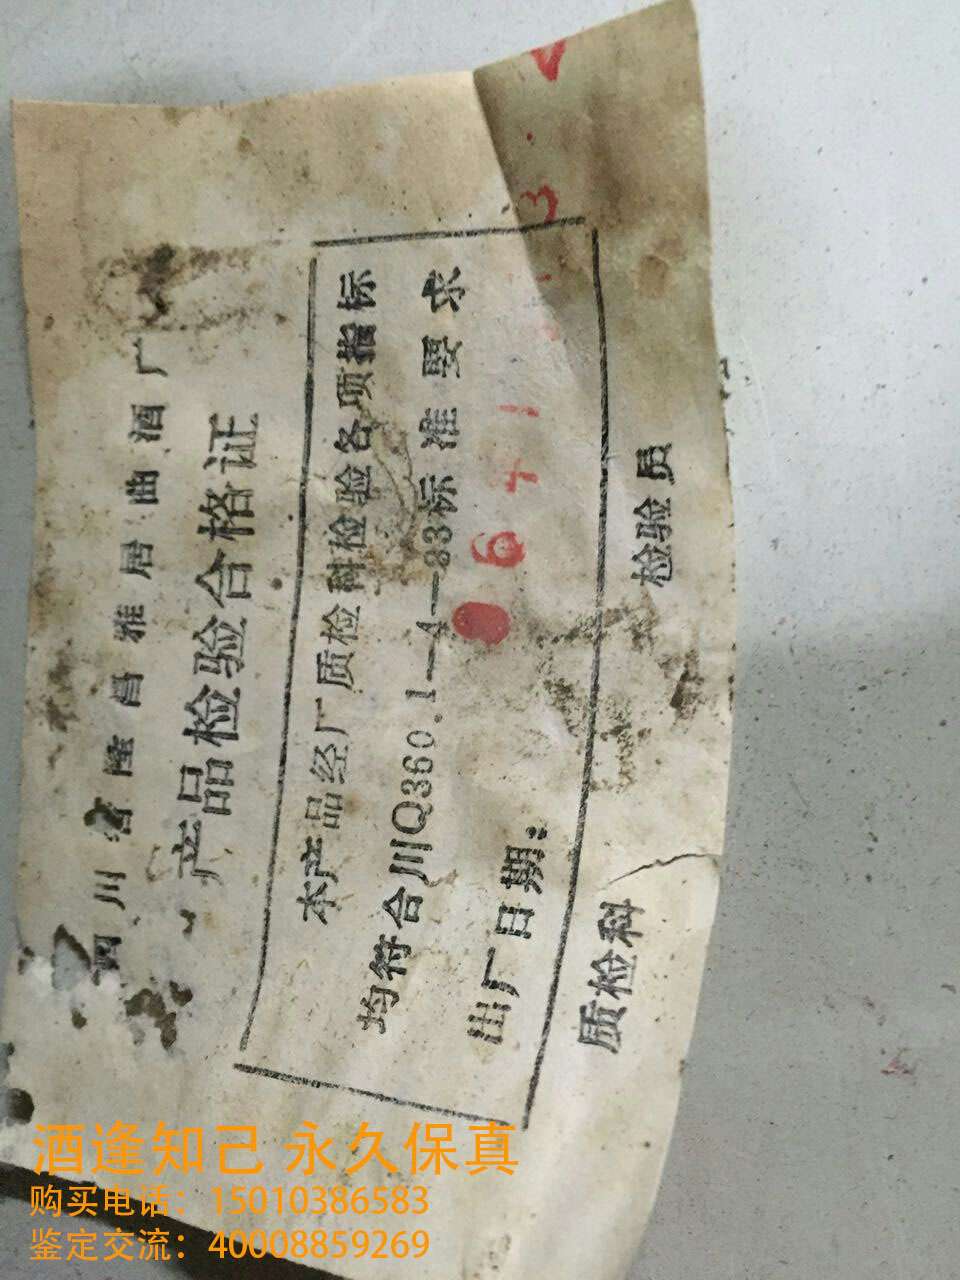 四川省隆昌雅居曲酒厂
产品检验合格证
本产品经厂质检科检验各项指标
均符合川Q360.1—4—83标准要求
出厂日期：
质检科 检验员
酒逢知己 永久保真
购买电话：15010386583
鉴定交流：40008859269